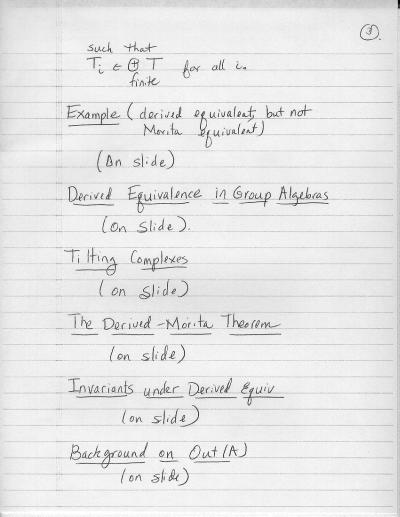 3
such that
Tᵢ ∈ ⊕ T for all i.
finite
Example (derived equivalent, but not
Morita equivalent)
(On slide)
Derived Equivalence in Group Algebras
(On slide).
Tilting Complexes
(on slide)
The Derived-Morita Theorem
(on slide)
Invariants under Derived Equiv
(on slide)
Background on Out(A)
(on slide)